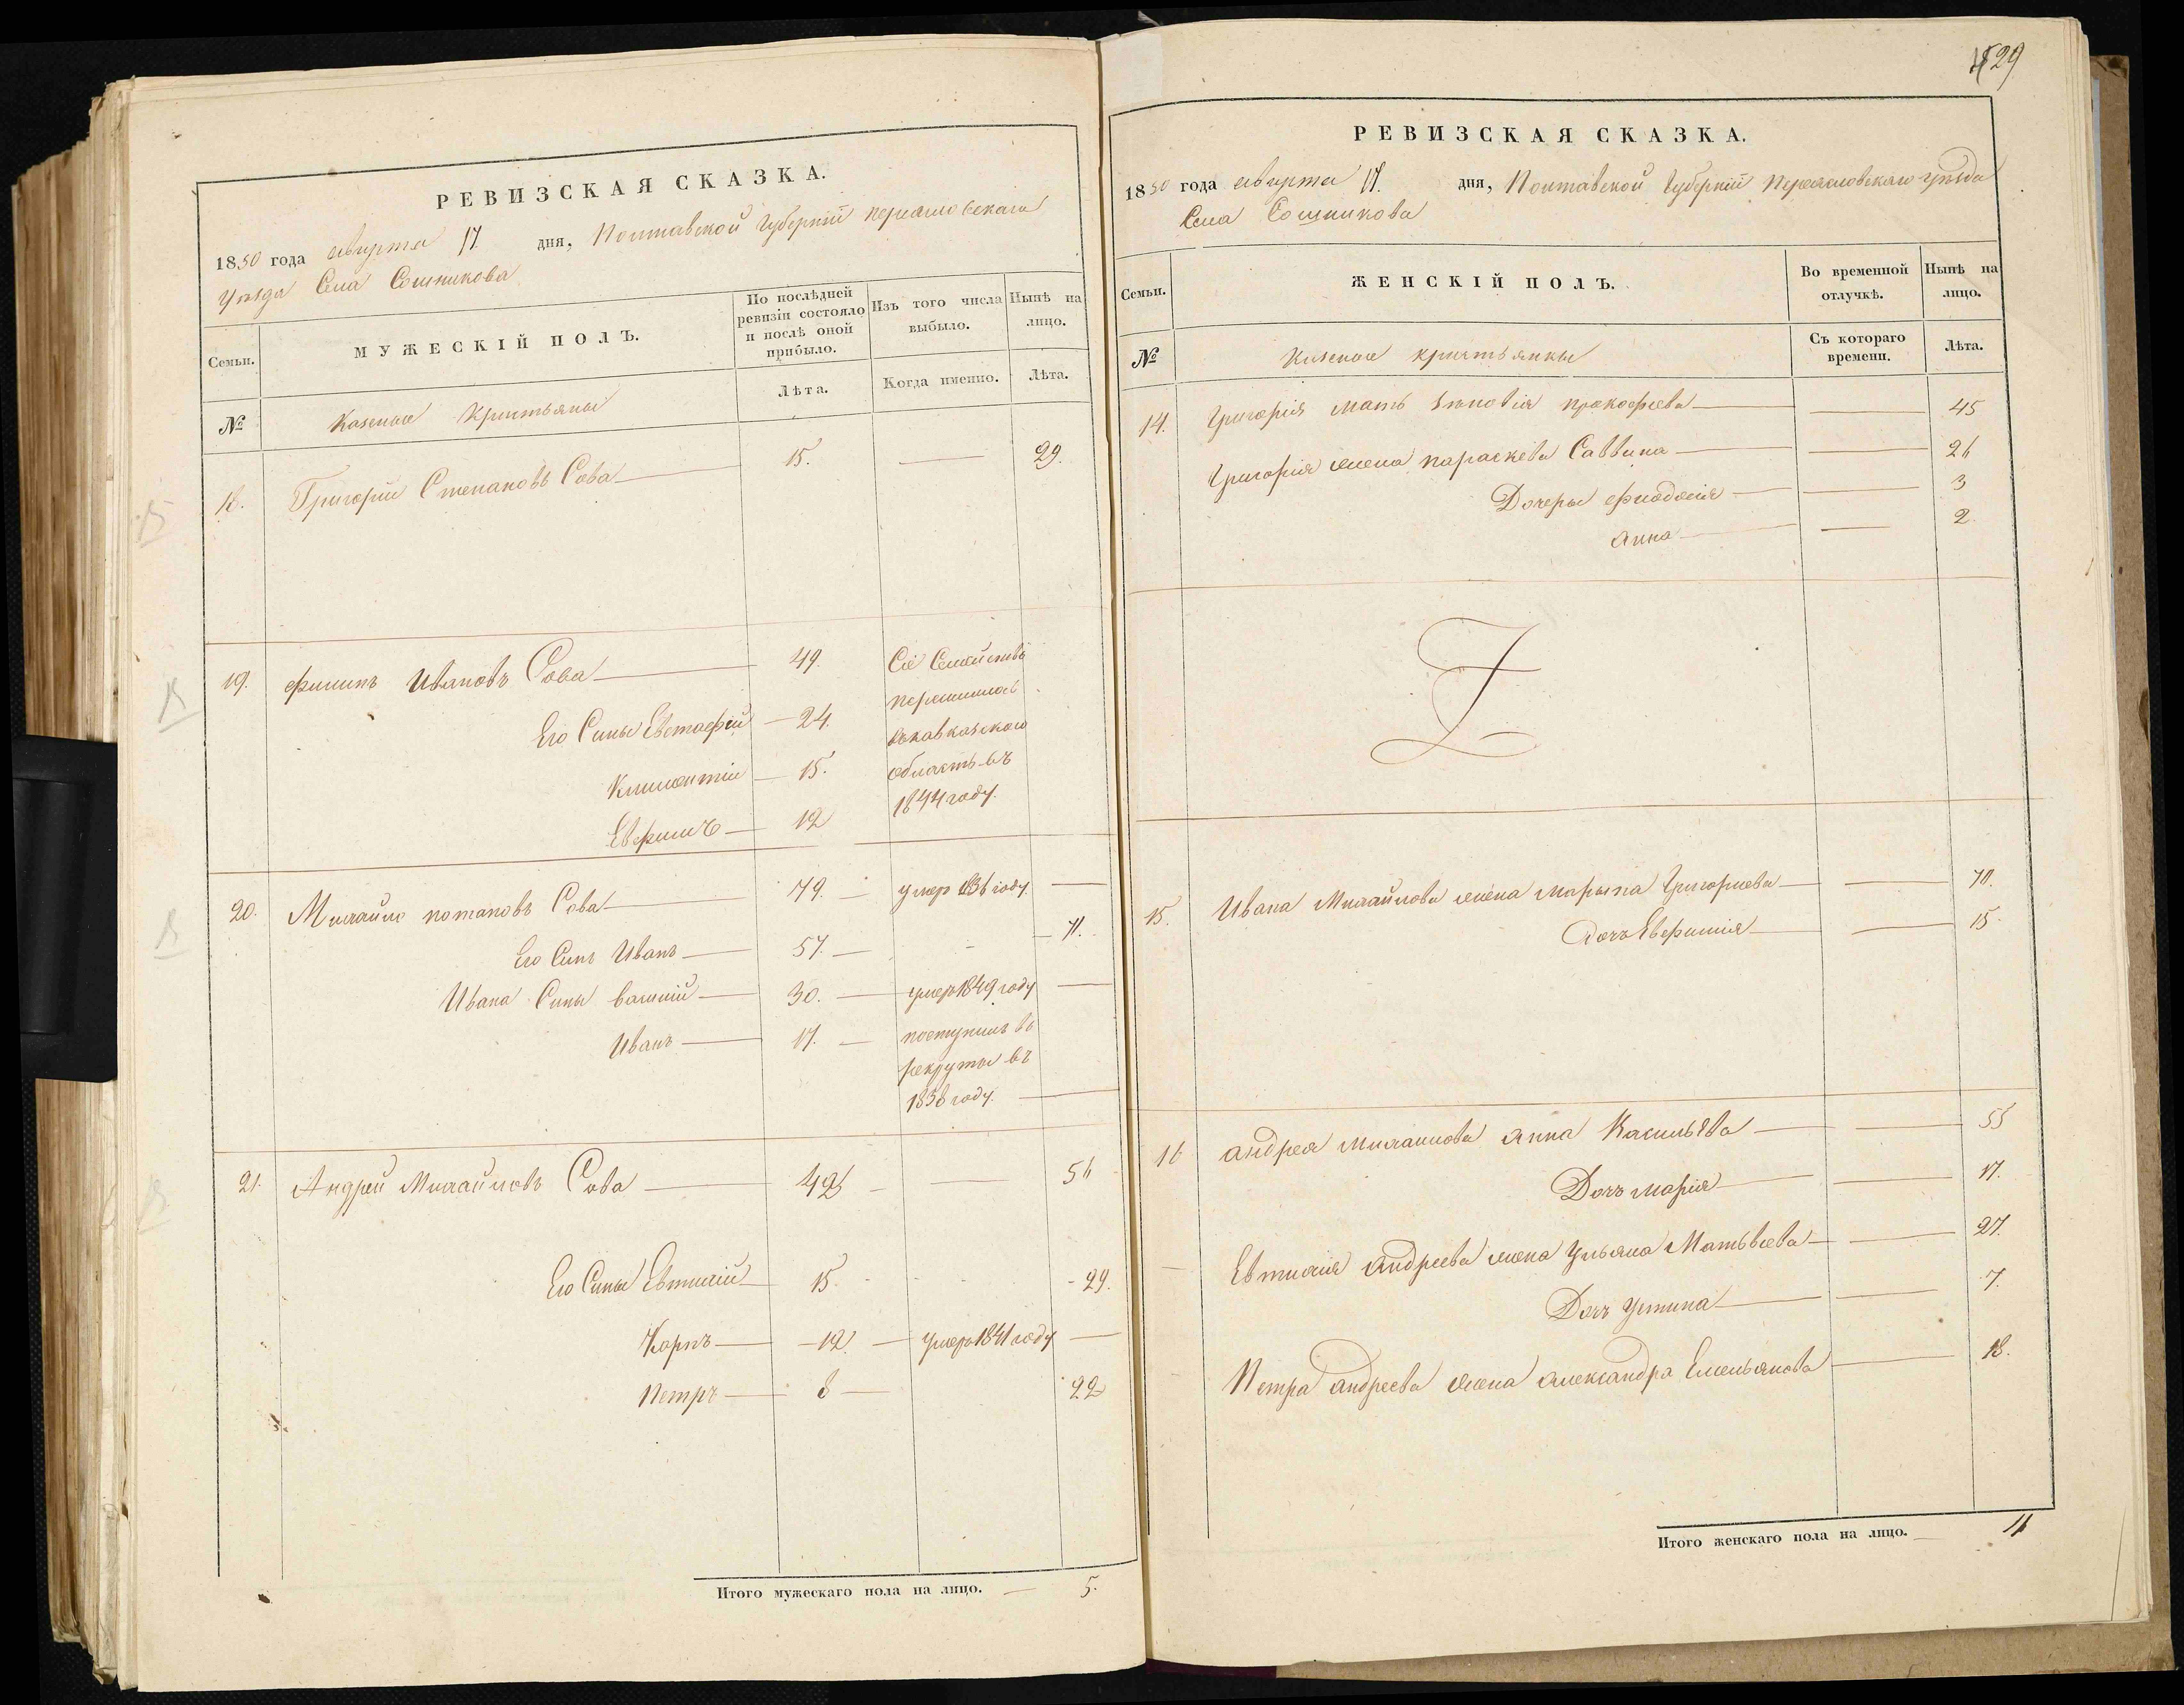 РЕВИЗСКАЯ СКАЗКА.
1850 года августа 17. дня, Полтавской Губерніи переясловского
уѣзда Села Сошникова
Семьи.
МУЖЕСКІЙ ПОЛЪ.
По послѣдней ревизіи состояло и послѣ оной прибыло.
Изъ того числа выбыло.
Нынѣ на лицо.
№
Казеные Кристьяны
Лѣта.
Когда именно.
Лѣта.
18. Григорій Степановъ Сова 15. 29.
19. филипъ Ивановъ Сова 49. Сіе Семейство
переишло
Его Сины Евстафій 24. вкавказского
Климентій 15. область въ
1844 году.
Евфимъ 12
20. Михайло потаповъ Сова 79. умер 1836 году.
Его Синъ Иванъ 57. 71.
Ивана Сины василій 30. умеръ 1849 году
Иванъ 17. поступилъ во
рекруты въ
1838 году.
21. Андрей Михайловъ Сова 42 56
Его Сины Евтихій 15. 29.
Карпъ 12. умеръ 1841 году
Петръ 8 22
Итого мужескаго пола на лицо. 5.
529
РЕВИЗСКАЯ СКАЗКА.
1850 года августа 17. дня, Полтавской Губерніи Переясловскаго уѣзда
Села Сошникова
Семьи.
ЖЕНСКІЙ ПОЛЪ.
Во временной отлучкѣ.
Нынѣ на лицо.
№
Казеные кристьянки
Съ котораго времени.
Лѣта.
14. Григорія мать Зѣновія прокофіева 45
Григорія жена параскева Саввина 26
Дочеры фиодосія 3
анна 2.
15. Ивана Михайлова жена марына Григориева 70.
дочъ Евфимія 15.
16 андрея михаилова анна Касильева 55
Дочъ марія 17.
Евтихія андреева жена Ульяна Матьвеева 27.
Дочъ Устина 7.
Петра андреева жена александра Емельянова 18.
Итого женскаго пола на лицо. 11